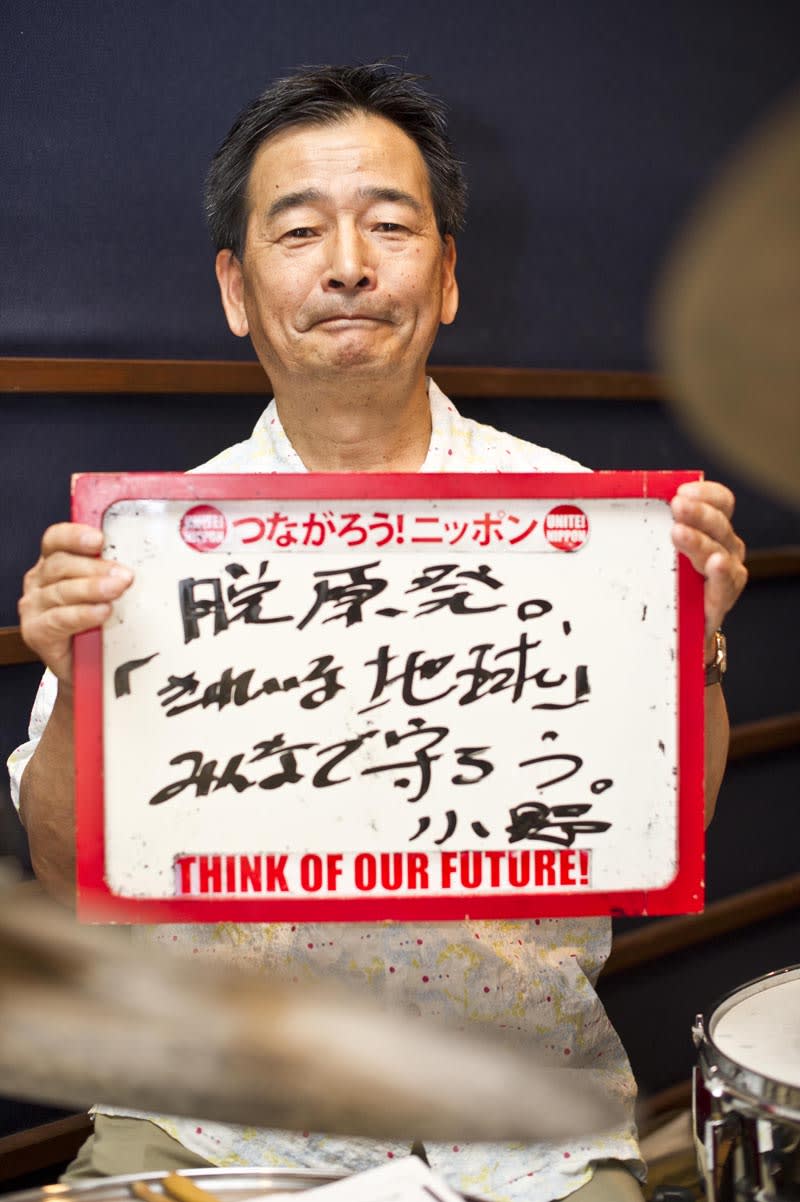 UNITE! NIPPON つながろう!ニッポン UNITE! NIPPON
脱原発。
「きれいな地球」
みんなで守ろう。
小野
THINK OF OUR FUTURE!